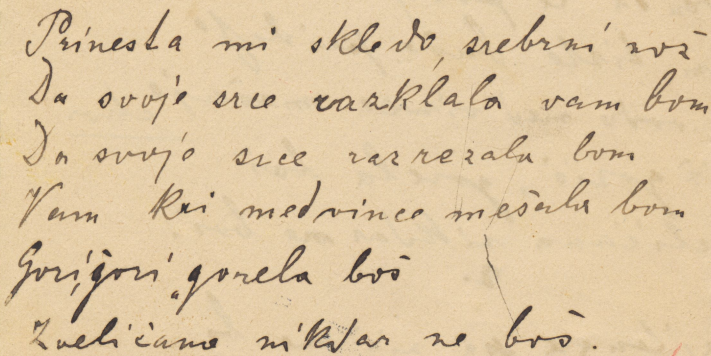 Prinesta mi skledo, srebrni nož
Da svoje srce razklala vam bom
Da svoje srce razrezala bom
Vam kri med vince mešala bom
Gori, gori, gorela boš
Zveličana nikdar ne boš.